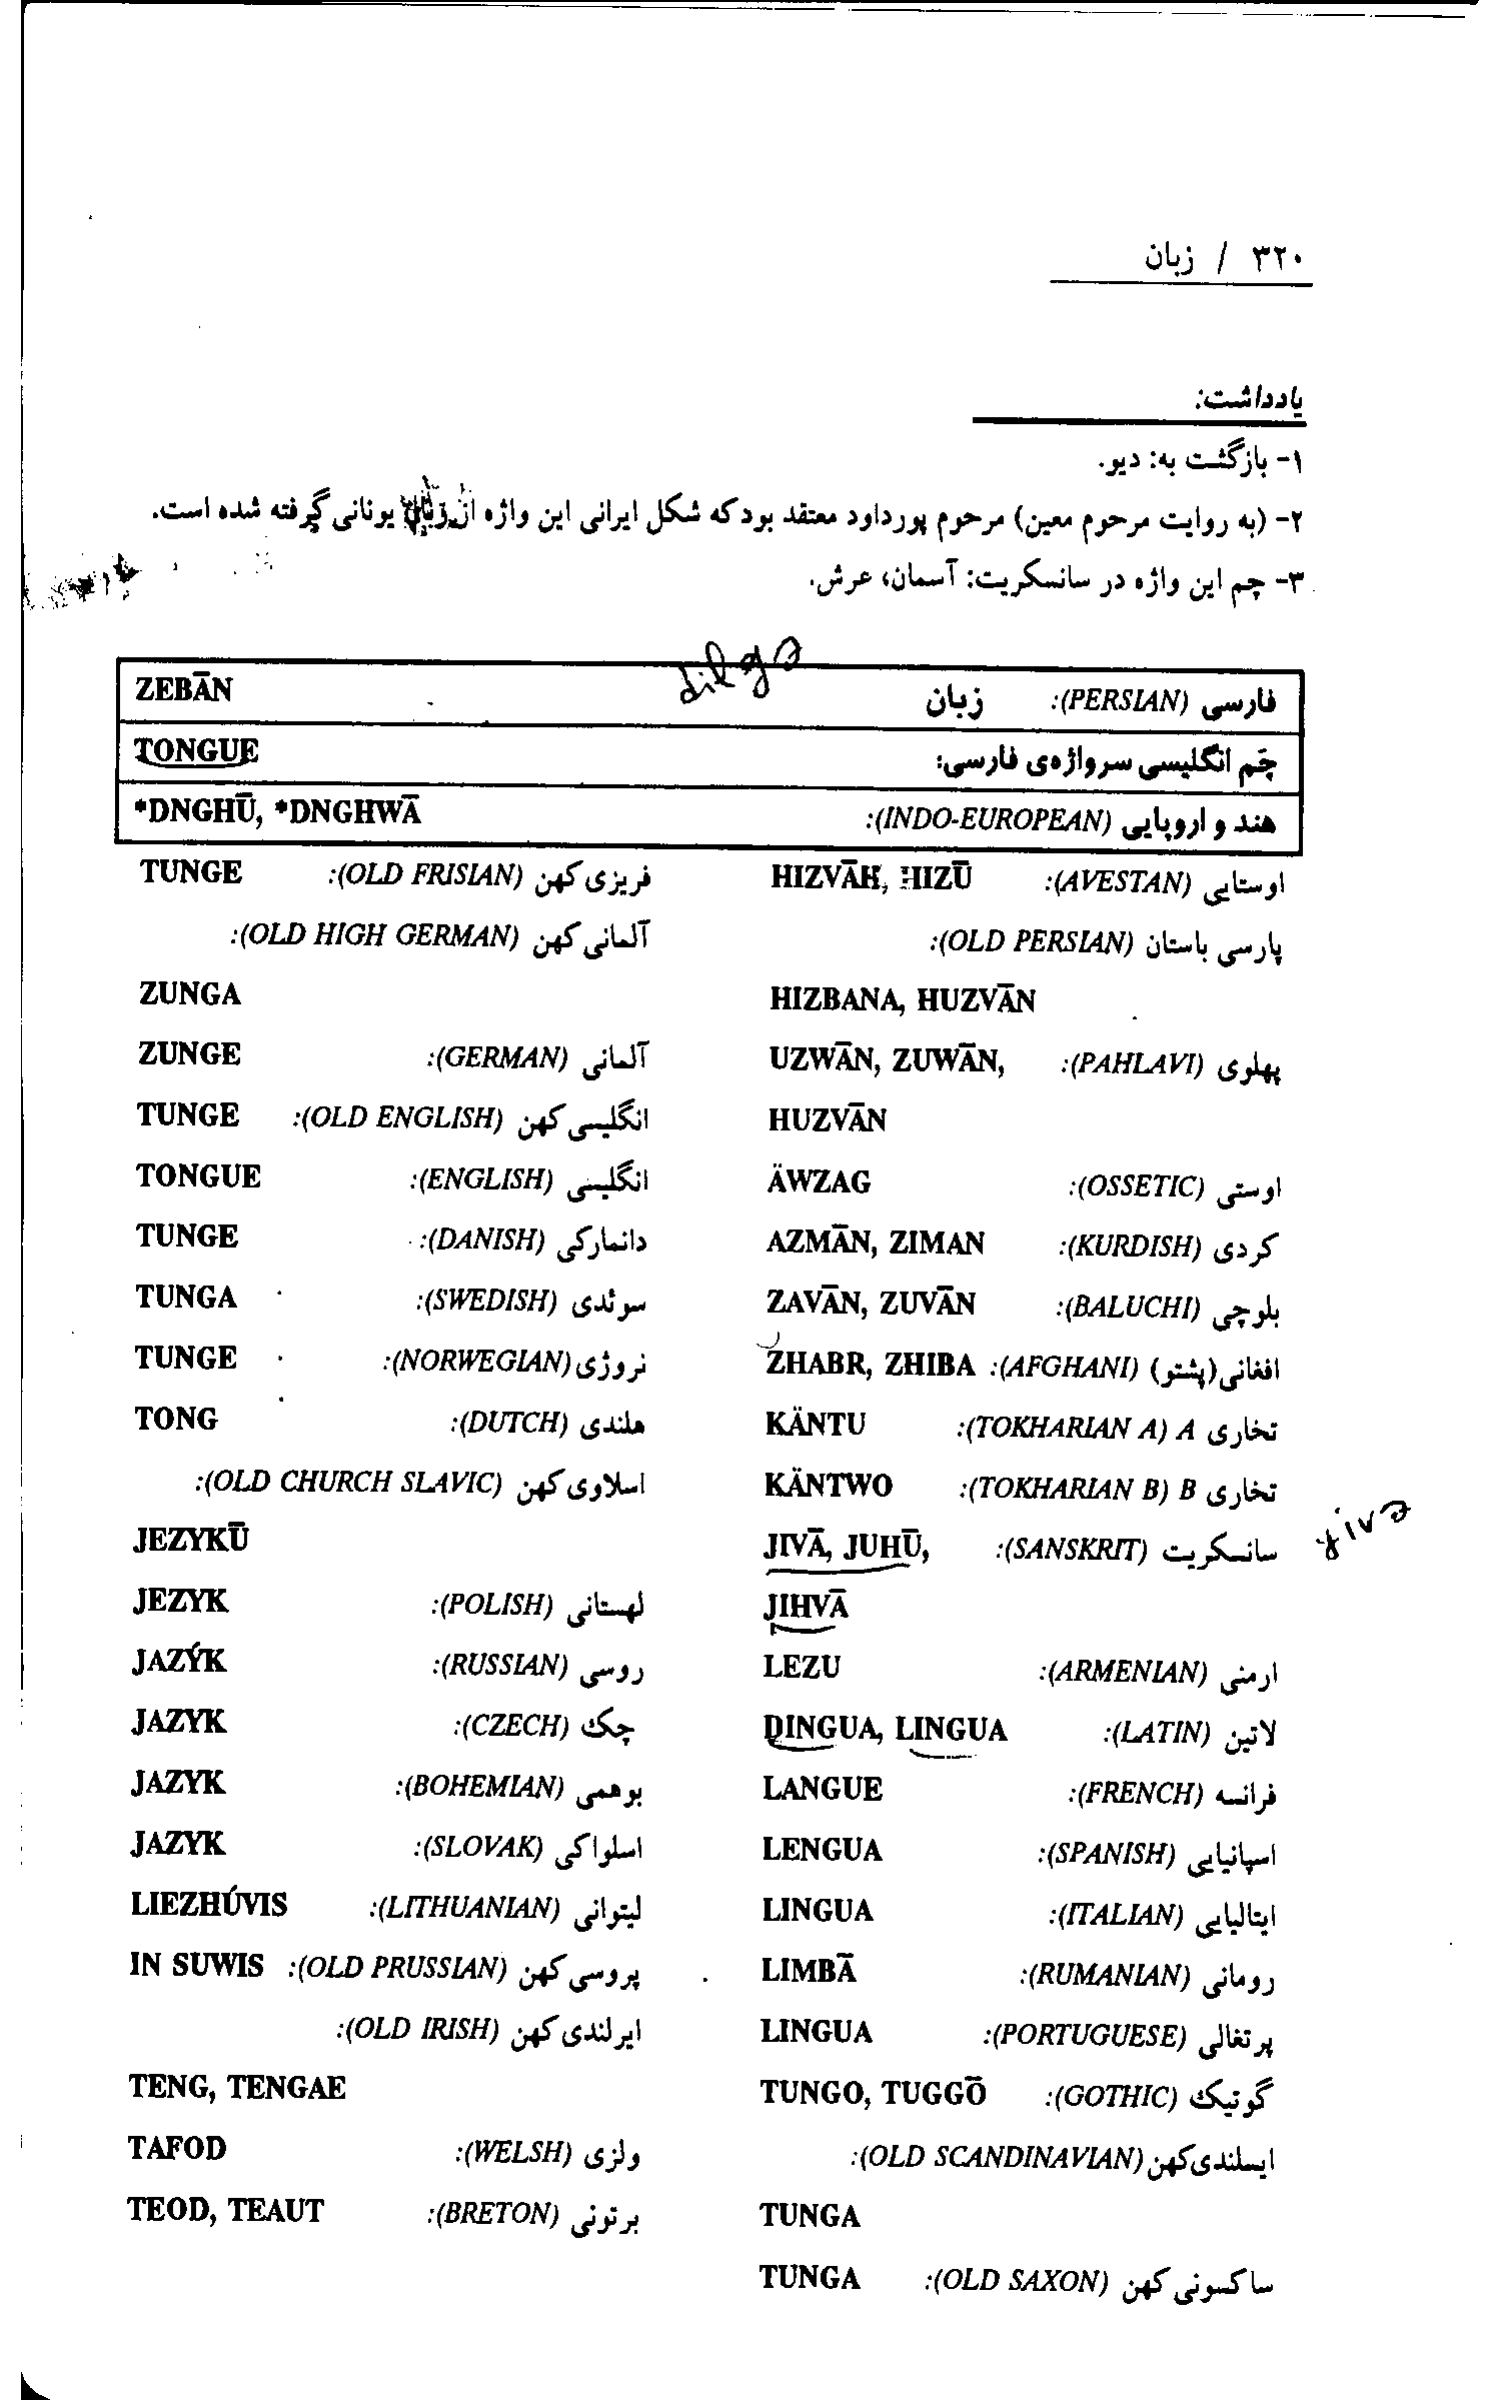 ۳۲۰ / زبان
یادداشت:
۱- بازگشت به: دیو.
۲- (به روایت مرحوم معین) مرحوم پورداود معتقد بود که شکل ایرانی این واژه از زبان یونانی گرفته شده است.
۳- چم این واژه در سانسکریت: آسمان، عرش.
dilga
فارسی (PERSIAN): زبان ZEBĀN
چم انگلیسی سرواژه‌ی فارسی: TONGUE
هند و اروپایی (INDO-EUROPEAN): *DNGHŪ, *DNGHWĀ
اوستایی (AVESTAN): HIZVĀH, HIZŪ
پارسی باستان (OLD PERSIAN):
HIZBANA, HUZVĀN
پهلوی (PAHLAVI): UZWĀN, ZUWĀN,
HUZVĀN
اوستی (OSSETIC): ÄWZAG
کردی (KURDISH): AZMĀN, ZIMAN
بلوچی (BALUCHI): ZAVĀN, ZUVĀN
افغانی(پشتو) (AFGHANI): ZHABR, ZHIBA
تخاری A (TOKHARIAN A): KÄNTU
تخاری B (TOKHARIAN B): KÄNTWO
سانسکریت (SANSKRIT): JIVĀ, JUHŪ,
JIHVĀ
yiva
ارمنی (ARMENIAN): LEZU
لاتین (LATIN): DINGUA, LINGUA
فرانسه (FRENCH): LANGUE
اسپانیایی (SPANISH): LENGUA
ایتالیایی (ITALIAN): LINGUA
رومانی (RUMANIAN): LIMBĀ
پرتغالی (PORTUGUESE): LINGUA
گوتیک (GOTHIC): TUNGO, TUGGŌ
ایسلندی کهن (OLD SCANDINAVIAN):
TUNGA
ساکسونی کهن (OLD SAXON): TUNGA
فریزی کهن (OLD FRISIAN): TUNGE
آلمانی کهن (OLD HIGH GERMAN):
ZUNGA
آلمانی (GERMAN): ZUNGE
انگلیسی کهن (OLD ENGLISH): TUNGE
انگلیسی (ENGLISH): TONGUE
دانمارکی (DANISH): TUNGE
سوئدی (SWEDISH): TUNGA
نروژی (NORWEGIAN): TUNGE
هلندی (DUTCH): TONG
اسلاوی کهن (OLD CHURCH SLAVIC):
JEZYKŪ
لهستانی (POLISH): JEZYK
روسی (RUSSIAN): JAZÝK
چک (CZECH): JAZYK
بوهمی (BOHEMIAN): JAZYK
اسلواکی (SLOVAK): JAZYK
لیتوانی (LITHUANIAN): LIEZHÚVIS
پروسی کهن (OLD PRUSSIAN): IN SUWIS
ایرلندی کهن (OLD IRISH):
TENG, TENGAE
ولزی (WELSH): TAFOD
برتونی (BRETON): TEOD, TEAUT